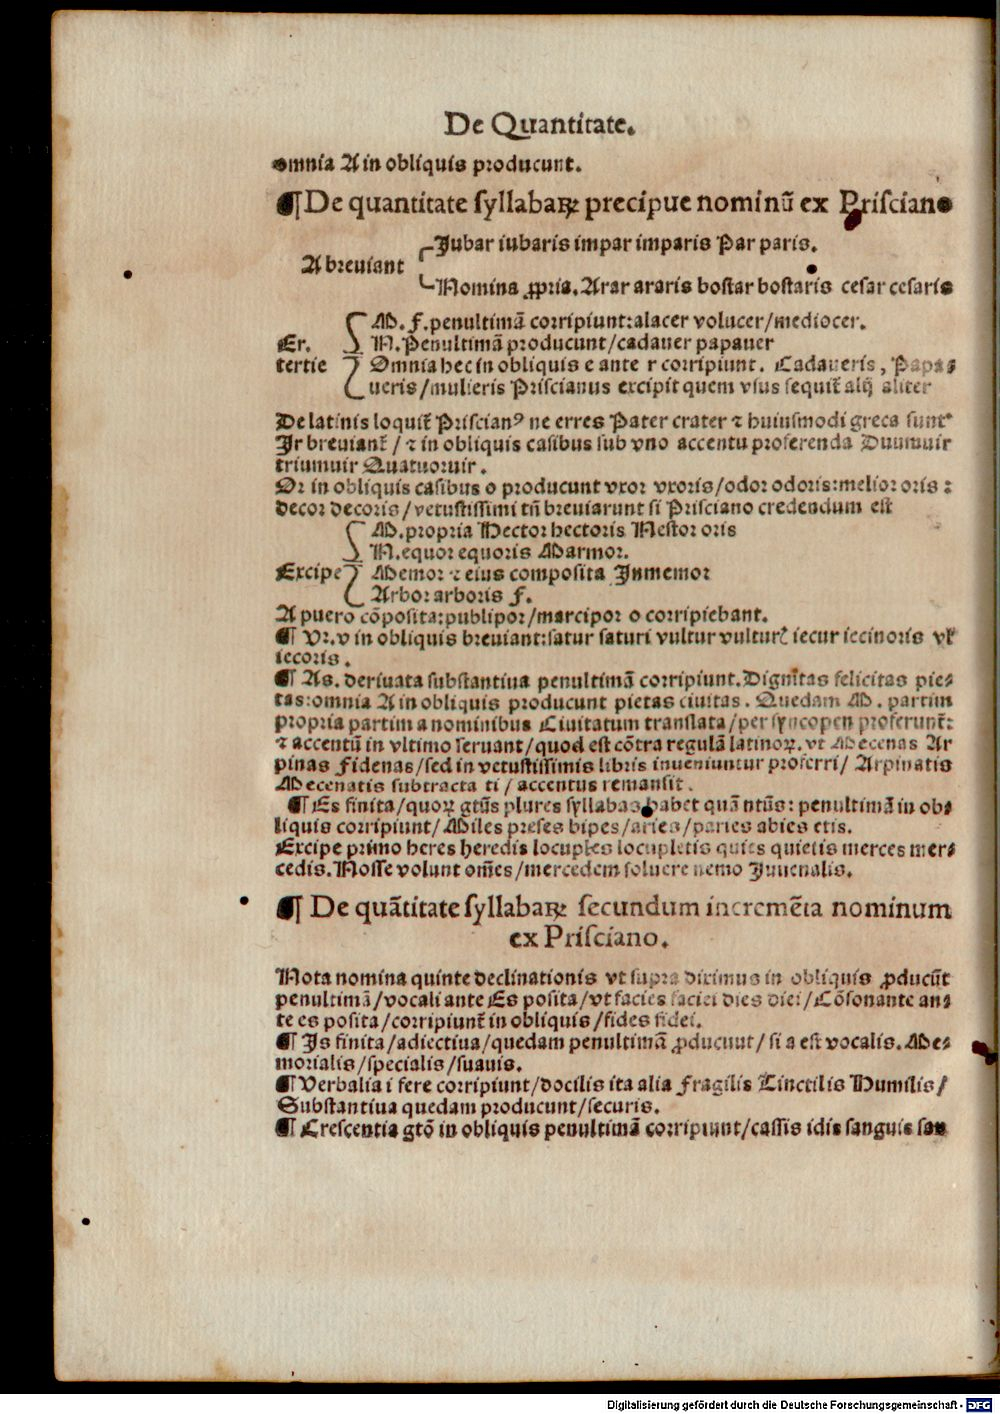 De Quantitate.
omnia A in obliquis producunt.
¶ De quantitate syllabaꝝ precipue nominū ex Prisciano
Jubar iubaris impar imparis Par paris.
A breuiant
Nomina ꝓpria. Arar araris bostar bostaris cesar cesaris
M. f. penultimā corripiunt: alacer volucer/mediocer.
Er. N. Penultimā producunt/cadauer papauer
tertie Omnia hec in obliquis e ante r corripiunt. Cadaueris, Papa⸗
ueris/mulieris Priscianus excipit quem vsus sequit̄ alij aliter
De latinis loquit̄ Priscianꝰ ne erres Pater crater ⁊ huiusmodi greca sunt
Ir breuiant̄/ ⁊ in obliquis casibus sub vno accentu proferenda Duumuir
triumuir Quatuoruir.
Or in obliquis casibus o producunt vxor vxoris/odor odoris: melior oris:
decor decoris/vetustissimi tn̄ breuiarunt si Prisciano credendum est
M. propria Hector hectoris Nestor oris
N. equor equoris Marmor.
Excipe Memor ⁊ eius composita Inmemor
Arbor arboris f.
A puero cōposita: publipor/marcipor o corripiebant.
¶ Ur. v in obliquis breuiant: satur saturi vultur vulturꝭ iecur iecinoris vl̄
iecoris.
¶ As. deriuata substantiua penultimā corripiunt. Dignitas felicitas pie⸗
tas: omnia A in obliquis producunt pietas ciuitas. Quedam M. partim
propria partim a nominibus Ciuitatum translata/per syncopen proferunt̄:
⁊ accentū in vltimo seruant/quod est cōtra regulā latinoꝝ. vt Mecenas Ar
pinas Fidenas/sed in vetustissimis libris inueniuntur proferri/ Arpinatis
Mecenatis subtracta ti/ accentus remansit.
¶ Es finita/quoꝝ gtūs plures syllabas habet quā ntūs: penultimā in ob⸗
liquis corripiunt/Miles preses bipes/aries/paries abies etis.
Excipe primo heres heredis locuples locupletis quies quietis merces mer⸗
cedis. Nosse volunt om̄es/mercedem soluere nemo Juuenalis.
¶ De quātitate syllabaꝝ secundum incremēta nominum
ex Prisciano.
Nota nomina quinte declinationis vt supra diximus in obliquis ꝓducūt
penultimā/vocali ante Es posita/vt facies faciei dies diei/Cōsonante an⸗
te es posita/corripiunt̄ in obliquis/fides fidei.
¶ Is finita/adiectiua/quedam penultimā ꝓducunt/si a est vocalis. Me⸗
morialis/specialis/suauis.
¶ Verbalia i fere corripiunt/docilis ita alia Fragilis Tinctilis Humilis/
Substantiua quedam producunt/securis.
¶ Crescentia gtō in obliquis penultimā corripiunt/cassis idis sanguis san
Digitalisierung gefördert durch die Deutsche Forschungsgemeinschaft - DFG